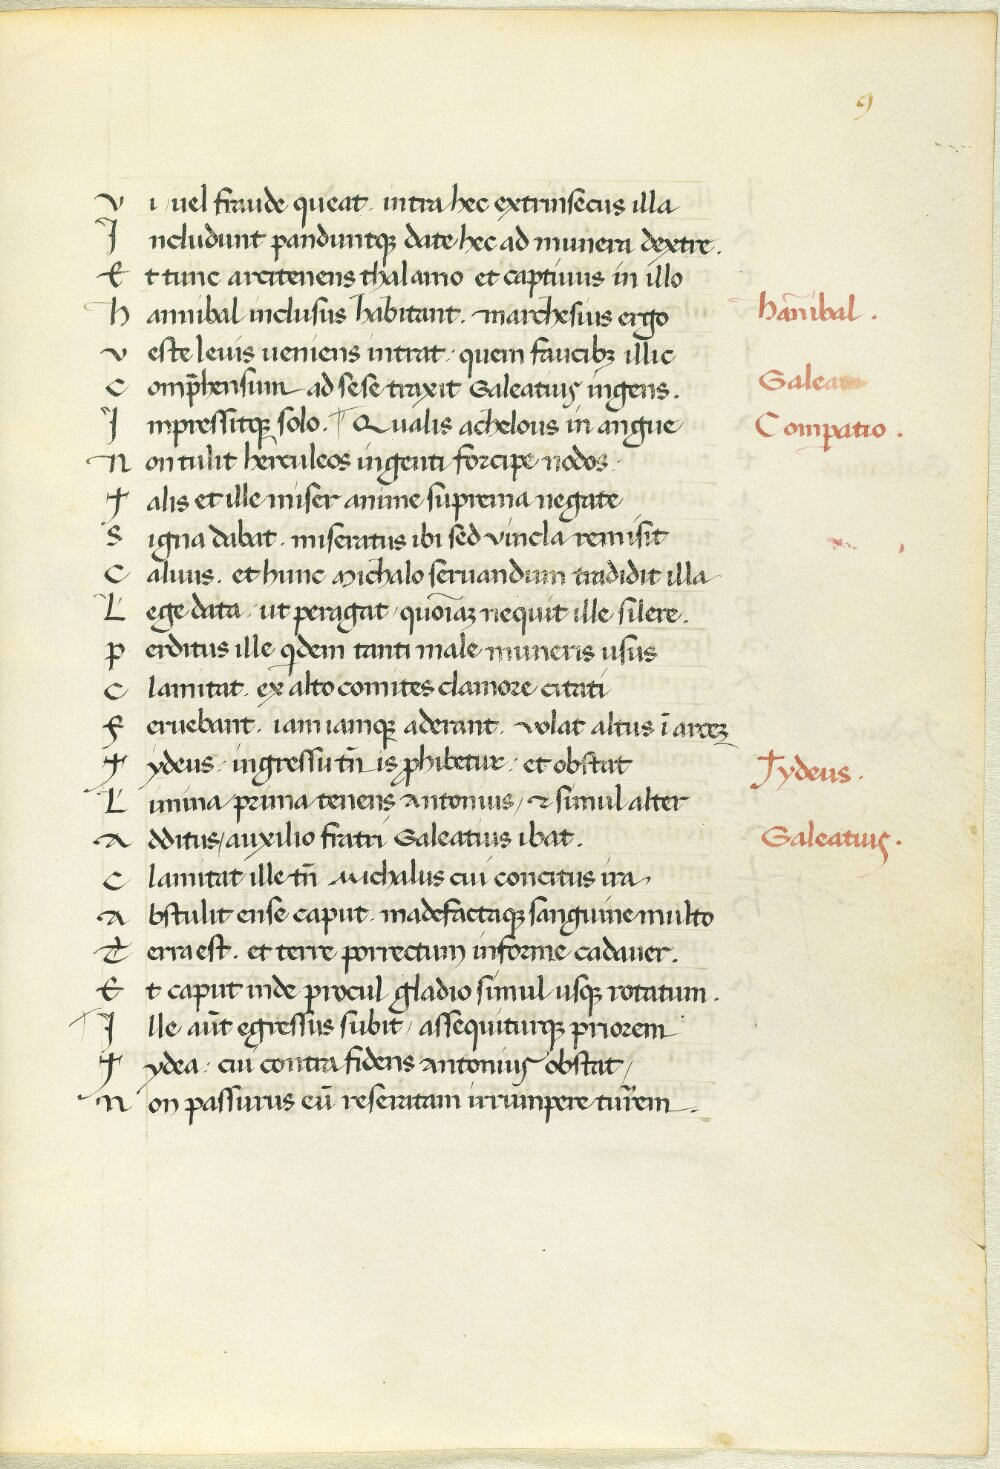 9
Vi uel fraude queat. intra hec extrinsecus illa
Includunt panduntq; date hec ad munera dextre.
Et tunc arcitenens thalamo et captiuus in illo
Hannibal inclusus habitant. marchesius ergo
Hañibal.
Veste leuis ueniens intrat. quem faucibꝫ illic
Comp̃hensum ad sese traxit Galeatius ingens.
Galea
Impressitq; solo. Qualis achelous in angue
Comparatio.
Non tulit herculeos ingenti forcipe nodos.
Talis et ille miser anime suprema negate
Signa dabat. miseratus ibi sed vincla remisit
Caluus. et hunc Michalo seruandum tradidit illa
Lege data. ut peragat, quoniaꝫ nequit ille silere.
Perditus ille qdem tanti male muneris usus
Clamitat. ex alto comites clamore citati
Feruebant. iam iamq; aderant. Volat altus ī arceꝫ
Tydeus. ingressu tñ is ꝓhibetur. et obstat
Tydeus.
Limina prima tenens Antonius, ⁊ simul alter
Additus, auxilio fratri Galeatius ibat.
Galeatius.
Clamitat ille tñ Michalus cui concitus ira
Abstulit ense caput. madefactaq; sanguine multo
Terra est. et terre porrectum informe cadauer.
Et caput inde procul gladio simul usq; rotatum.
Ille aũt egressus subit, assequiturq; priorem
Tydea. cui contra fidens Antonius obstat,
Non passurus eũ reseratam irrumpere turrem.